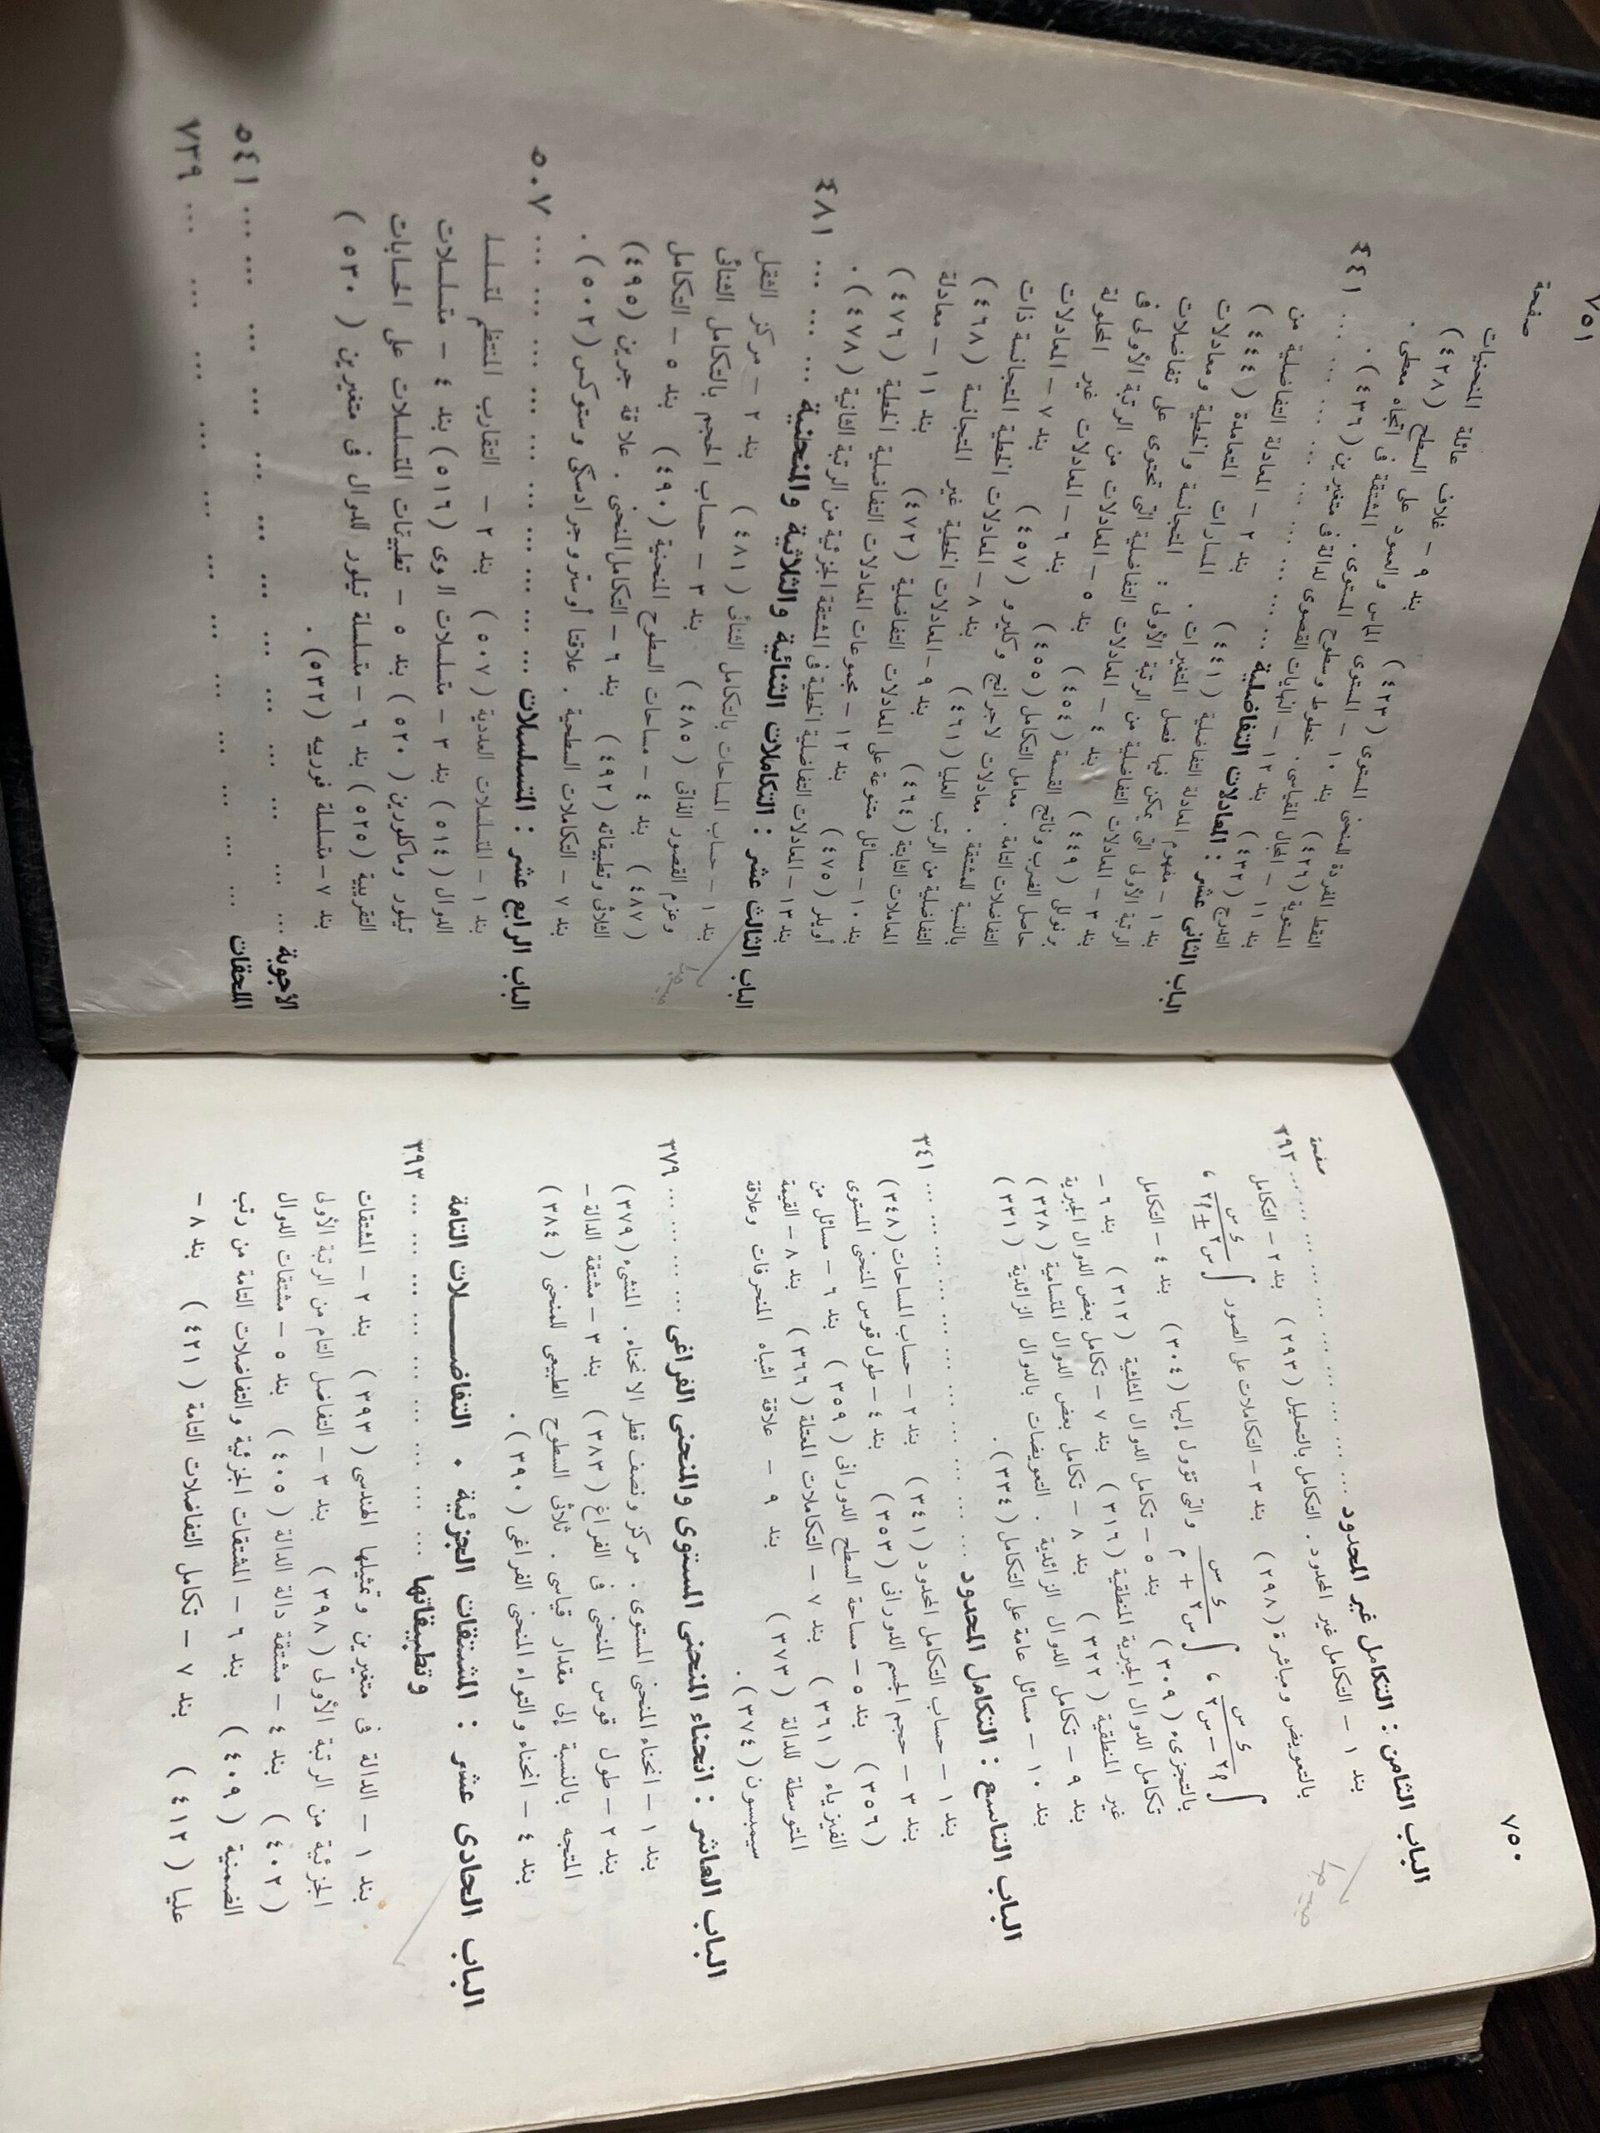 ٧٥٠
صفحة
الباب الثامن : التكامل غير المحدود ... ... ... ... ... ... ... ... ٢٩٣
بند ١ – التكامل غير المحدود . التكامل بالتحليل ( ٢٩٣ ) بند ٢ – التكامل
بالتعويض ومباشرة ( ٢٩٨ ) بند ٣ – التكاملات على الصور ∫ ء س / س٢ ± م٢ ،
∫ ء س / م٢ – س٢ ، ∫ ء س / س٢ + م والتى تؤول إليها ( ٣٠٤ ) بند ٤ – التكامل
بالتجزىء ( ٣٠٩ ) بند ٥ – تكامل الدوال المثلثية ( ٣١٢ ) بند ٦ –
تكامل الدوال الجبرية المنطقية ( ٣١٦ ) بند ٧ – تكامل بعض الدوال الجبرية
غير المنطقية ( ٣٢٢ ) بند ٨ – تكامل بعض الدوال المتسامية ( ٣٢٨ )
بند ٩ – تكامل الدوال الزائدية . التعويضات بالدوال الزائدية ( ٣٣١ )
بند ١٠ – مسائل عامة على التكامل ( ٣٣٤ ) .
الباب التاسع : التكامل المحدود ... ... ... ... ... ... ... ... ٣٤١
بند ١ – حساب التكامل المحدود ( ٣٤١ ) بند ٢ – حساب المساحات ( ٣٤٨ )
بند ٣ – حجم الجسم الدورانى ( ٣٥٣ ) بند ٤ – طول قوس المنحنى المستوى
( ٣٥٦ ) بند ٥ – مساحة السطح الدورانى ( ٣٥٩ ) بند ٦ – مسائل من
الفيزياء ( ٣٦١ ) بند ٧ – التكاملات المعتلة ( ٣٦٦ ) بند ٨ – القيمة
المتوسطة للدالة ( ٣٧٣ ) بند ٩ – علاقة اشباه المنحرفات وعلاقة
سيمبسون ( ٣٧٤ ) .
الباب العاشر : انحناء المنحنى المستوى والمنحنى الفراغى ... ... ... ٣٧٩
بند ١ – انحناء المنحنى المستوى . مركز ونصف قطر الانحناء . المنشىء ( ٣٧٩ )
بند ٢ – طول قوس المنحنى فى الفراغ ( ٣٨٣ ) بند ٣ – مشتقة الدالة –
المتجه بالنسبة إلى مقدار قياسى . ثلاثى السطوح الطبيعى للمنحنى ( ٣٨٤ )
بند ٤ – انحناء والتواء المنحنى الفراغى ( ٣٩٠ ) .
الباب الحادى عشر : المشتقات الجزئية . التفاضــــلات التامة
وتطبيقاتها ... ... ... ... ... ... ... ... ٣٩٣
بند ١ – الدالة فى متغيرين وتمثيلها الهندسى ( ٣٩٣ ) بند ٢ – المشتقات
الجزئية من الرتبة الأولى ( ٣٩٨ ) بند ٣ – التفاضل التام من الرتبة الأولى
( ٤٠٢ ) بند ٤ – مشتقة دالة الدالة ( ٤٠٥ ) بند ٥ – مشتقات الدوال
الضمنية ( ٤٠٩ ) بند ٦ – المشتقات الجزئية والتفاضلات التامة من رتب
عليا ( ٤١٢ ) بند ٧ – تكامل التفاضلات التامة ( ٤٢١ ) بند ٨ –
٧٥١
صفحة
النقط المفردة للمنحنى المستوى ( ٤٢٣ ) بند ٩ – غلاف عائلة المنحنيات
المستوية ( ٤٢٦ ) بند ١٠ – المستوى المماس والعمود على السطح ( ٤٢٨ )
بند ١١ – المجال القياسى . خطوط وسطوح المستوى . المشتقة فى اتجاه معطى .
التدرج ( ٤٣٢ ) بند ١٢ – النهايات القصوى لدالة فى متغيرين ( ٤٣٦ ) .
الباب الثانى عشر : المعادلات التفاضلية ... ... ... ... ... ... ... ٤٤١
بند ١ – مفهوم المعادلة التفاضلية ( ٤٤١ ) بند ٢ – المعادلة التفاضلية من
الرتبة الأولى التى يمكن فيها فصل المتغيرات . المسارات المتعامدة ( ٤٤٤ )
بند ٣ – المعادلات التفاضلية من الرتبة الأولى : المتجانسة والخطية ومعادلات
برنولى ( ٤٤٩ ) بند ٤ – المعادلات التفاضلية التى تحتوى على تفاضلات
حاصل الضرب وناتج القسمة ( ٤٥٤ ) بند ٥ – المعادلات من الرتبة الأولى فى
التفاضلات التامة . معامل التكامل ( ٤٥٥ ) بند ٦ – المعادلات غير المحلولة
بالنسبة للمشتقة . معادلات لاجرانج وكليرو ( ٤٥٧ ) بند ٧ – المعادلات
التفاضلية من الرتب العليا ( ٤٦١ ) بند ٨ – المعادلات الخطية المتجانسة ذات
المعاملات الثابتة ( ٤٦٤ ) بند ٩ – المعادلات الخطية غير المتجانسة ( ٤٦٨ )
بند ١٠ – مسائل متنوعة على المعادلات التفاضلية ( ٤٧٣ ) بند ١١ – معادلة
أويلر ( ٤٧٥ ) بند ١٢ – مجموعات المعادلات التفاضلية الخطية ( ٤٧٦ )
بند ١٣ – المعادلات التفاضلية الخطية فى المشتقة الجزئية من الرتبة الثانية ( ٤٧٨ ) .
الباب الثالث عشر : التكاملات الثنائية والثلاثية والمنحنية ... ... ... ٤٨١
بند ١ – حساب المساحات بالتكامل الثنائى ( ٤٨١ ) بند ٢ – مركز الثقل
وعزم القصور الذاتى ( ٤٨٥ ) بند ٣ – حساب الحجم بالتكامل الثنائى
( ٤٨٧ ) بند ٤ – مساحات السطوح المنحنية ( ٤٩٠ ) بند ٥ – التكامل
الثلاثى وتطبيقاته ( ٤٩٢ ) بند ٦ – التكامل المنحنى . علاقة جرين ( ٤٩٥ )
بند ٧ – التكاملات السطحية . علاقتا أوستروجرادسكى وستوكس ( ٥٠٢ ) .
الباب الرابع عشر : المتسلسلات ... ... ... ... ... ... ... ... ٥٠٧
بند ١ – المتسلسلات العددية ( ٥٠٧ ) بند ٢ – التقارب المنتظم لمتسلسلـ
الدوال ( ٥١٤ ) بند ٣ – متسلسلات القوى ( ٥١٦ ) بند ٤ – متسلسلات
تيلور وماكلورين ( ٥٢٠ ) بند ٥ – تطبيقات المتسلسلات على الحسابات
التقريبية ( ٥٢٥ ) بند ٦ – متسلسلة تيلور للدوال فى متغيرين ( ٥٣٠ )
بند ٧ – متسلسلة فوريه ( ٥٣٢ ) .
الأجوبة ... ... ... ... ... ... ... ... ... ... ... ٥٤١
الملحقات ... ... ... ... ... ... ... ... ... ... ... ٧٣٩